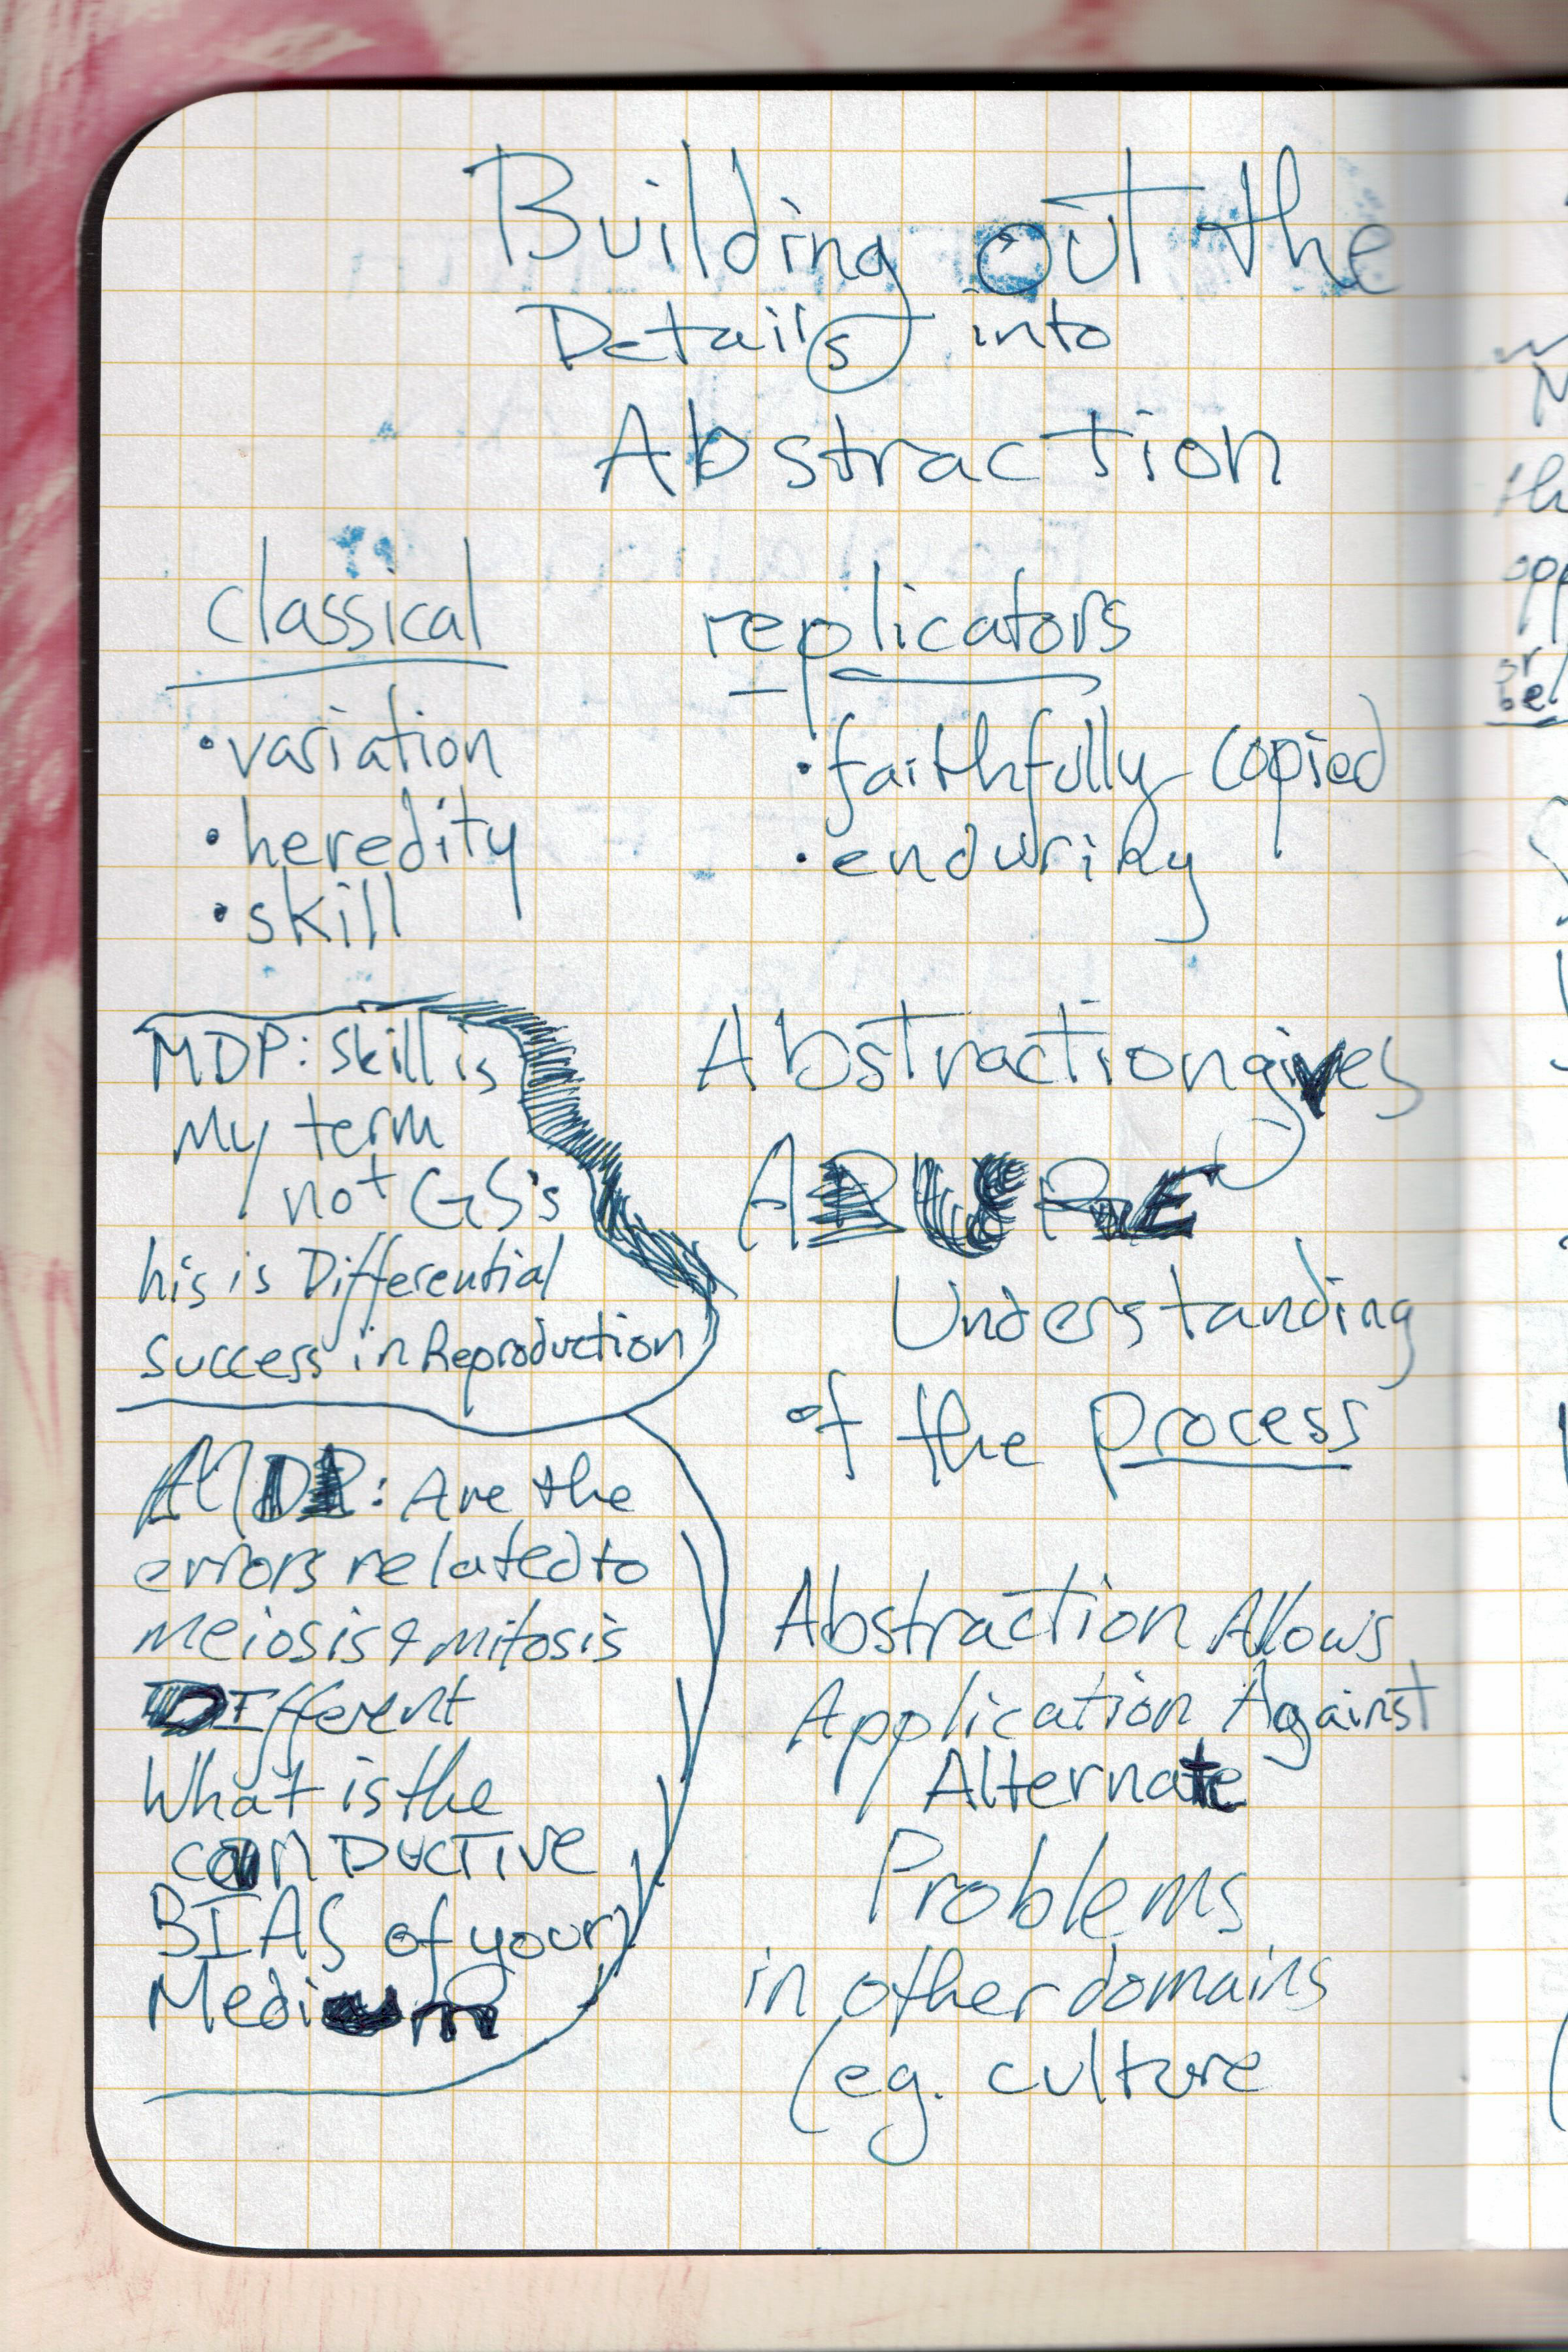 Building out the
Details into
Abstraction
classical
• variation
• heredity
• skill
replicators
• faithfully copied
• enduring
MDP: Skill is
My term
not GS's
his is Differential
success in Reproduction
MDP: Are the
errors related to
meiosis & mitosis
DIfferent
What is the
DUCTIVE
BIAS of your
Medium
Abstraction gives
A PURE
Understanding
of the process
Abstraction Allows
Application Against
Alternate
Problems
in other domains
(eg. culture
th
opp
or
be